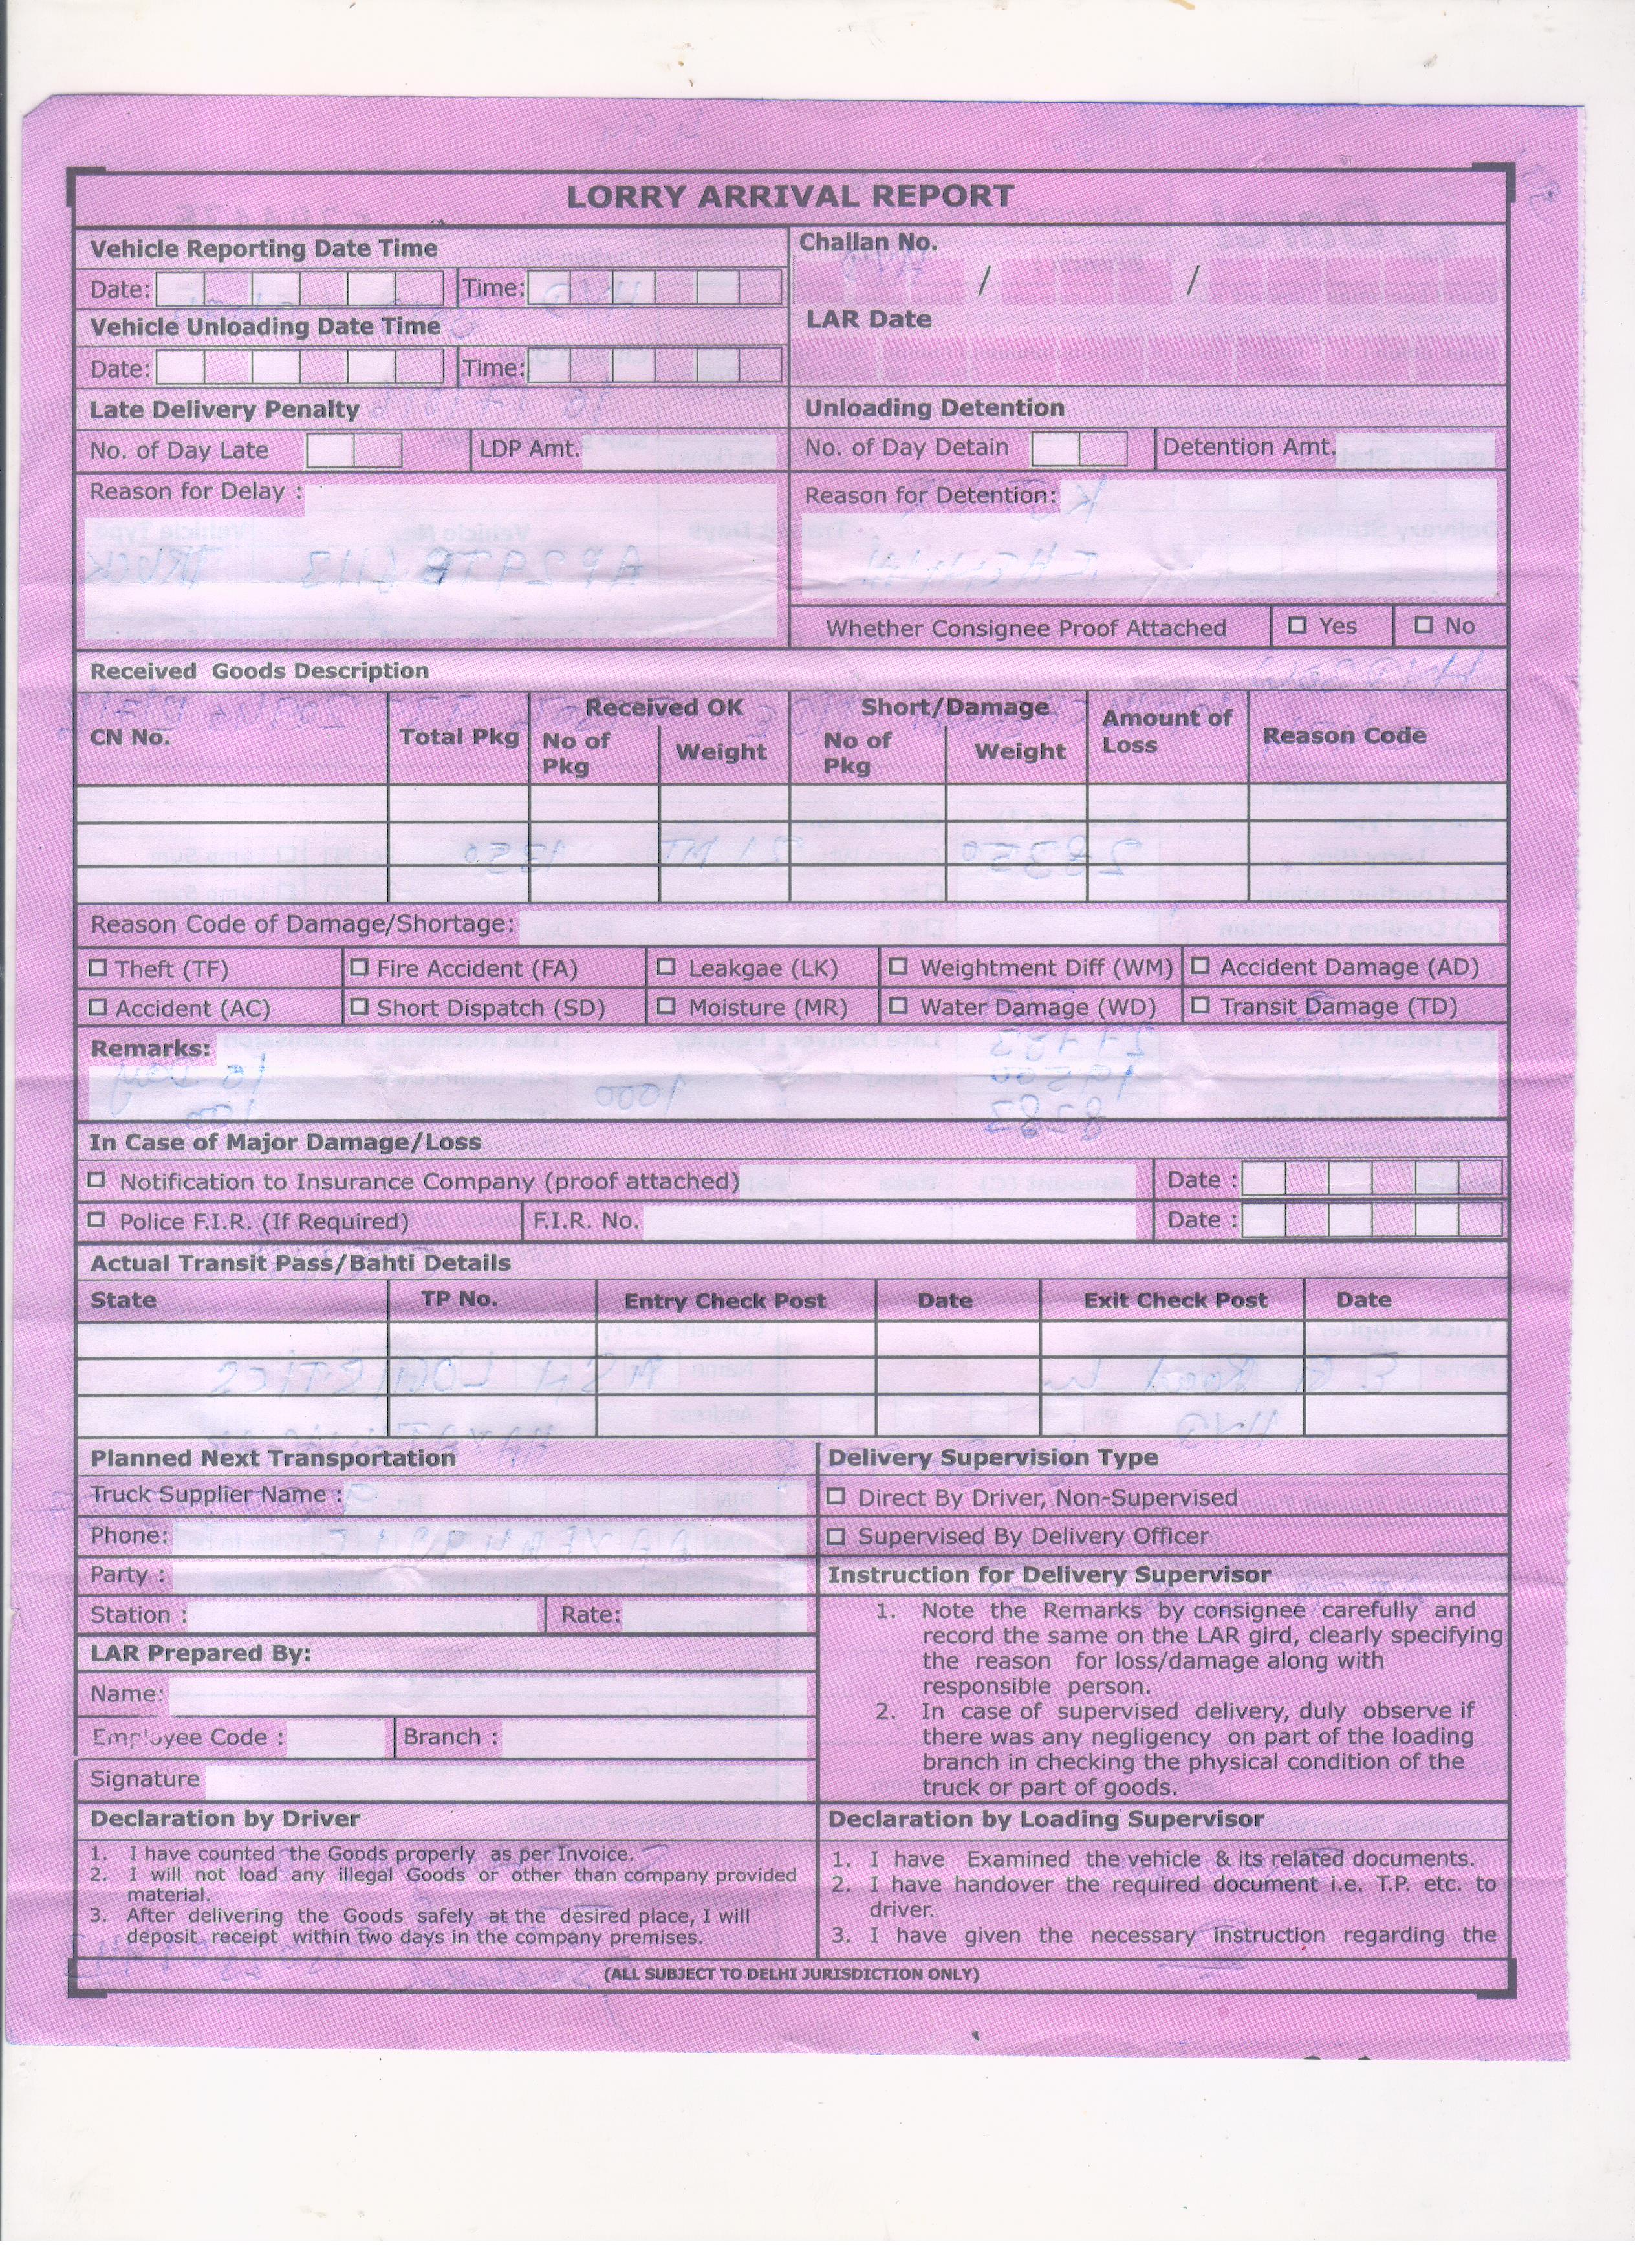 LORRY ARRIVAL REPORT
Vehicle Reporting Date Time
Challan No.
Date: Time: / /
Vehicle Unloading Date Time
LAR Date
Date: Time:
Late Delivery Penalty
Unloading Detention
No. of Day Late LDP Amt.
No. of Day Detain Detention Amt.
Reason for Delay :
Reason for Detention:
Whether Consignee Proof Attached Yes No
Received Goods Description
CN No. Total Pkg Received OK Short/Damage Amount of Loss Reason Code
No of Pkg Weight No of Pkg Weight
Reason Code of Damage/Shortage:
Theft (TF) Fire Accident (FA) Leakgae (LK) Weightment Diff (WM) Accident Damage (AD)
Accident (AC) Short Dispatch (SD) Moisture (MR) Water Damage (WD) Transit Damage (TD)
Remarks:
In Case of Major Damage/Loss
Notification to Insurance Company (proof attached) Date :
Police F.I.R. (If Required) F.I.R. No. Date :
Actual Transit Pass/Bahti Details
State TP No. Entry Check Post Date Exit Check Post Date
Planned Next Transportation
Truck Supplier Name :
Phone:
Party :
Station : Rate:
LAR Prepared By:
Name:
Employee Code : Branch :
Signature
Delivery Supervision Type
Direct By Driver, Non-Supervised
Supervised By Delivery Officer
Instruction for Delivery Supervisor
1. Note the Remarks by consignee carefully and
record the same on the LAR gird, clearly specifying
the reason for loss/damage along with
responsible person.
2. In case of supervised delivery, duly observe if
there was any negligency on part of the loading
branch in checking the physical condition of the
truck or part of goods.
Declaration by Driver
1. I have counted the Goods properly as per Invoice.
2. I will not load any illegal Goods or other than company provided
material.
3. After delivering the Goods safely at the desired place, I will
deposit receipt within two days in the company premises.
Declaration by Loading Supervisor
1. I have Examined the vehicle & its related documents.
2. I have handover the required document i.e. T.P. etc. to
driver.
3. I have given the necessary instruction regarding the
(ALL SUBJECT TO DELHI JURISDICTION ONLY)